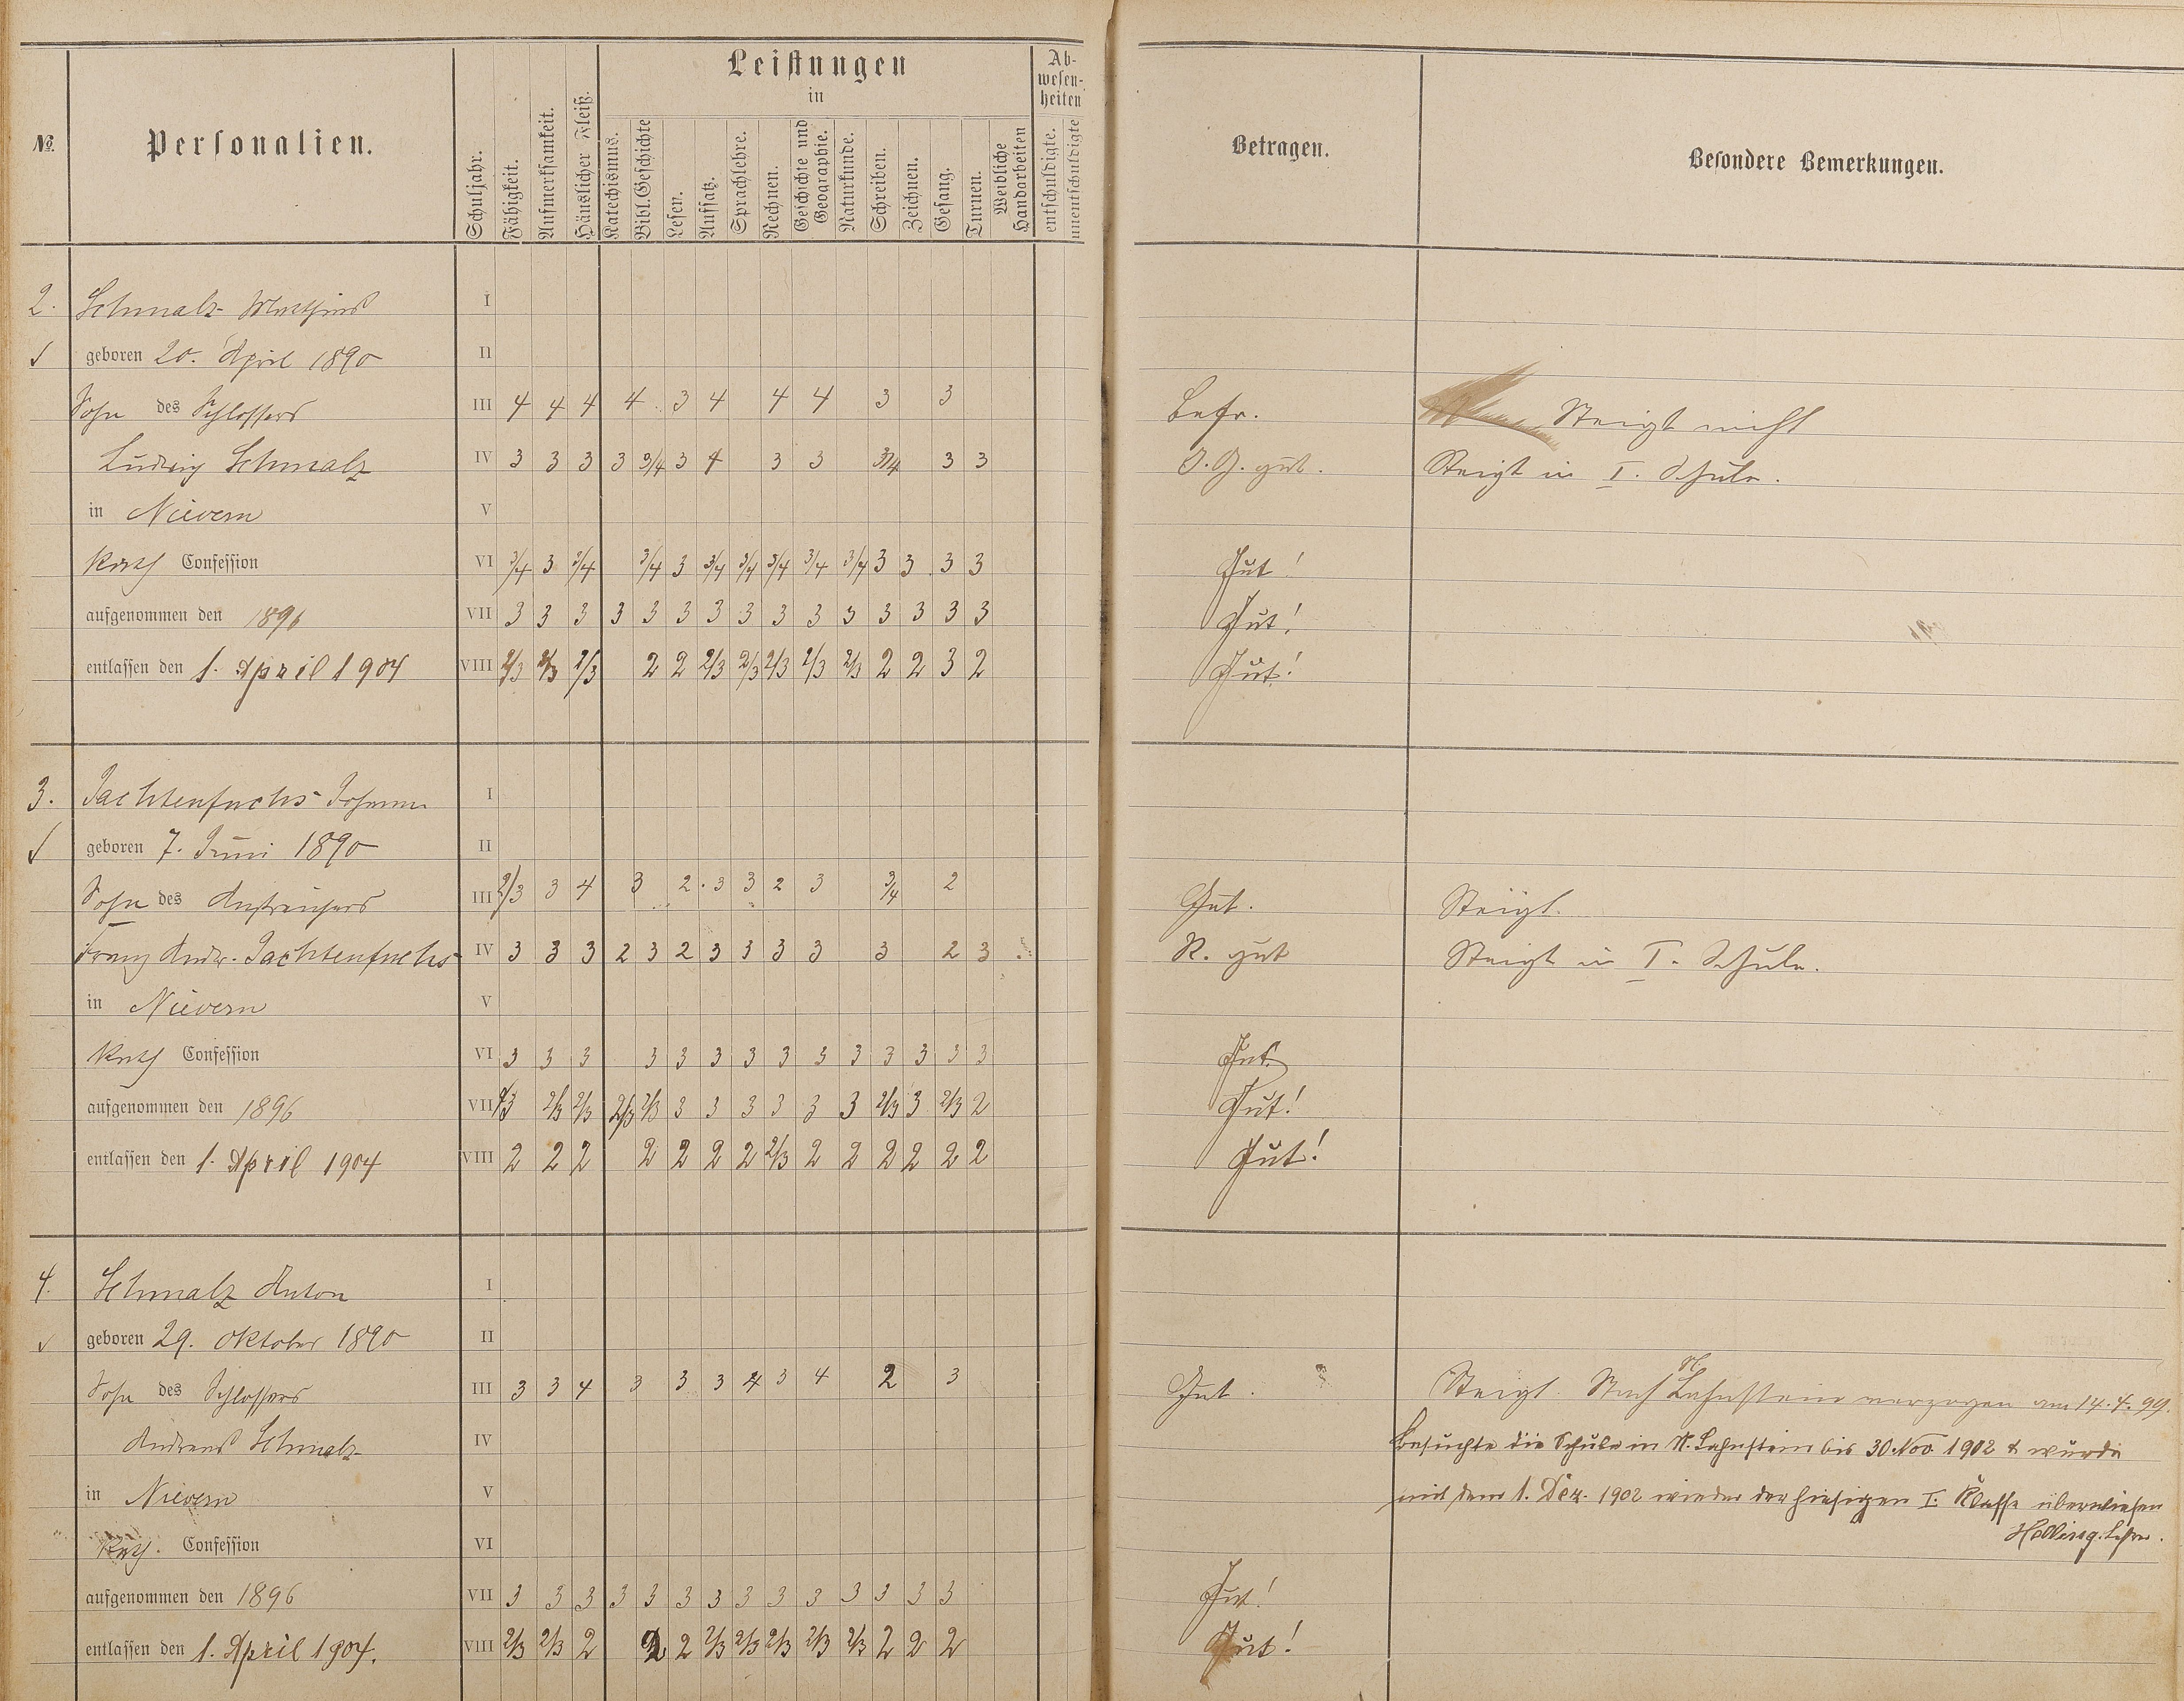 №.
Personalien.
Schuljahr.
Fähigkeit.
Aufmerksamkeit.
Häuslicher Fleiß.
Leistungen
in
Katechismus.
Bibl. Geschichte
Lesen.
Aufsatz.
Sprachlehre.
Rechnen.
Geschichte und
Geographie.
Naturkunde.
Schreiben.
Zeichnen.
Gesang.
Turnen.
Weibliche
Handarbeiten
Ab-
wesen-
heiten
entschuldigte.
unentschuldigte
Betragen.
Besondere Bemerkungen.
2. Schmalz Mathias I
geboren 20. April 1890 II
Sohn des Schlossers III 4 4 4 4 3 4 4 4 3 3 Befr. Steigt nicht
Ludwig Schmalz IV 3 3 3 3 3/4 3 4 3 3 3/4 3 3 gut. Steigt in I. Schule.
in Nievern V
Kath Confession VI 3/4 3 3/4 3/4 3 3/4 3/4 3/4 3/4 3/4 3 3 3 3 Gut!
aufgenommen den 1896 VII 3 3 3 3 3 3 3 3 3 3 3 3 3 3 3 Gut!
entlassen den 1. April 1904 VIII 2/3 2/3 2/3 2 2 2/3 2/3 2/3 2/3 2/3 2 2 3 2 Gut!
3. Jachtenfuchs Johann I
geboren 7. Juni 1890 II
Sohn des Anstreichers III 2/3 3 4 3 2 3 3 2 3 3/4 2 Gut. Steigt.
Franz Andr. Jachtenfuchs IV 3 3 3 2 3 2 3 3 3 3 3 2 3 R. gut Steigt in I. Schule.
in Nievern V
Kath Confession VI 3 3 3 3 3 3 3 3 3 3 3 3 3 3 Gut.
aufgenommen den 1896 VII 2/3 2/3 2/3 2/3 2/3 3 3 3 3 3 3 2/3 3 2/3 2 Gut!
entlassen den 1. April 1904 VIII 2 2 2 2 2 2 2 2/3 2 2 2 2 2 2 Gut!
4. Schmalz Anton I
geboren 29. Oktober 1890 II
Sohn des Schlossers III 3 3 4 3 3 3 4 3 4 2 3 Gut. Steigt. Nach N. Lahnstein verzogen am 14.4.99.
Andreas Schmalz IV Besuchte die Schule in N. Lahnstein bis 30. Nov. 1902 & wurde
in Nievern V mit dem 1. Dez. 1902 wieder der hiesigen I. Klasse überwiesen
Kath. Confession VI Lehrer.
aufgenommen den 1896 VII 3 3 3 3 3 3 3 3 3 3 3 3 3 3 Gut!
entlassen den 1. April 1904. VIII 2/3 2/3 2 2 2 2/3 2/3 2/3 2/3 2/3 2 2 2 Gut!